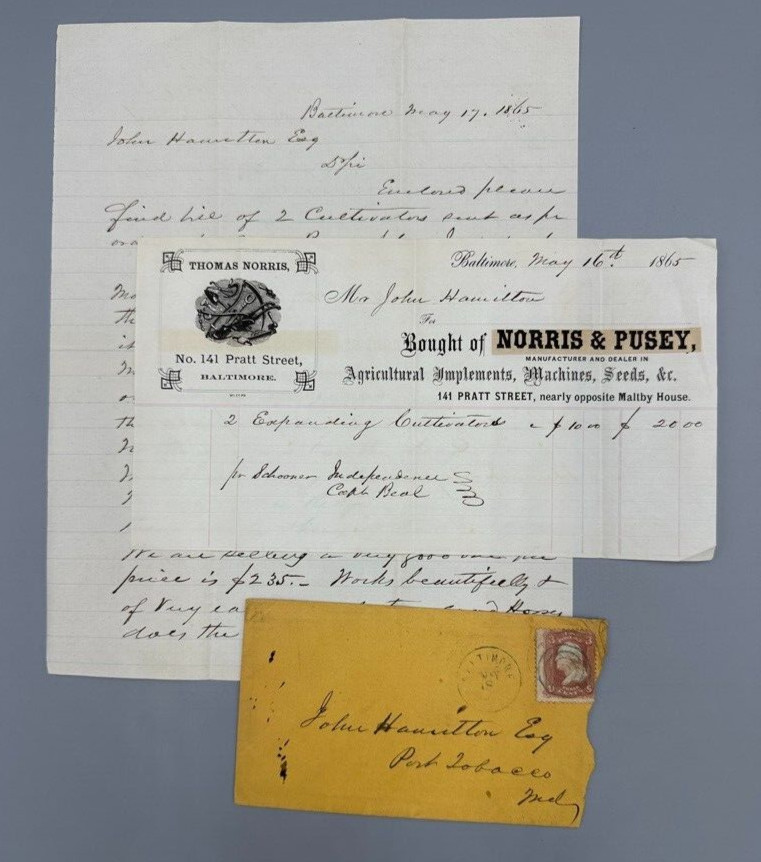 Baltimore May 17. 1865
John Hamilton Esq
Enclosed please
find bill of 2 Cultivators sent as pr
THOMAS NORRIS,
No. 141 Pratt Street,
BALTIMORE.
Baltimore, May 16th 1865
Mr John Hamilton
Bought of NORRIS & PUSEY,
MANUFACTURER AND DEALER IN
Agricultural Implements, Machines, Seeds, &c.
141 PRATT STREET, nearly opposite Maltby House.
2 Expanding Cultivators $10 00 $ 20 00
pr Schooner Independence
Capt Beal
We are selling a very good
price is $235.- Works beautifully &
of very
does the
BALTIMORE
John Hamilton Esq
Port Tobacco
Md